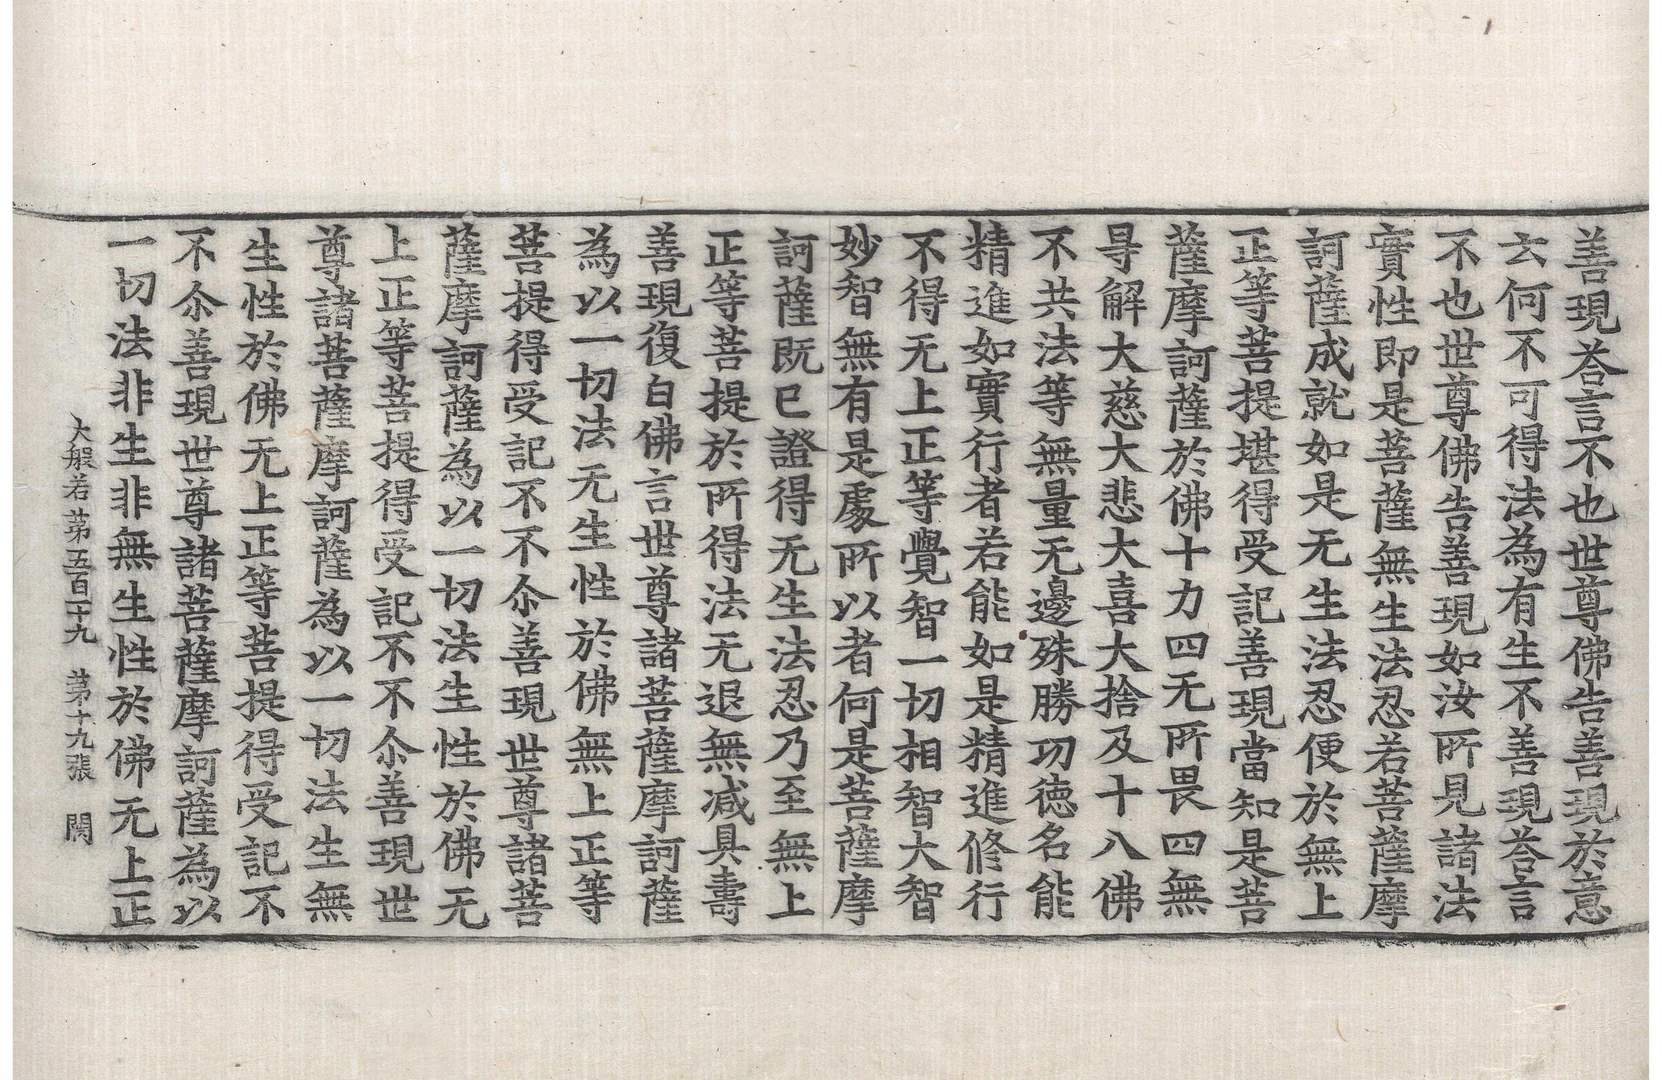 善現荅言不也世尊佛告善現於意
云何不可得法為有生不善現荅言
不也世尊佛告善現如汝所見諸法
實性即是菩薩無生法忍若菩薩摩
訶薩成就如是无生法忍便於無上
正等菩提堪得受記善現當知是菩
薩摩訶薩於佛十力四无所畏四無
㝵解大慈大悲大喜大捨及十八佛
不共法等無量无邊殊勝功德名能
精進如實行者若能如是精進修行
不得无上正等覺智一切相智大智
妙智無有是處所以者何是菩薩摩
訶薩既已證得无生法忍乃至無上
正等菩提於所得法无退無減具壽
善現復白佛言世尊諸菩薩摩訶薩
為以一切法无生性於佛無上正等
菩提得受記不不尒善現世尊諸菩
薩摩訶薩為以一切法生性於佛无
上正等菩提得受記不不尒善現世
尊諸菩薩摩訶薩為以一切法生無
生性於佛无上正等菩提得受記不
不尒善現世尊諸菩薩摩訶薩為以
一切法非生非無生性於佛无上正
大般若第五百二十九 第十九張 闕